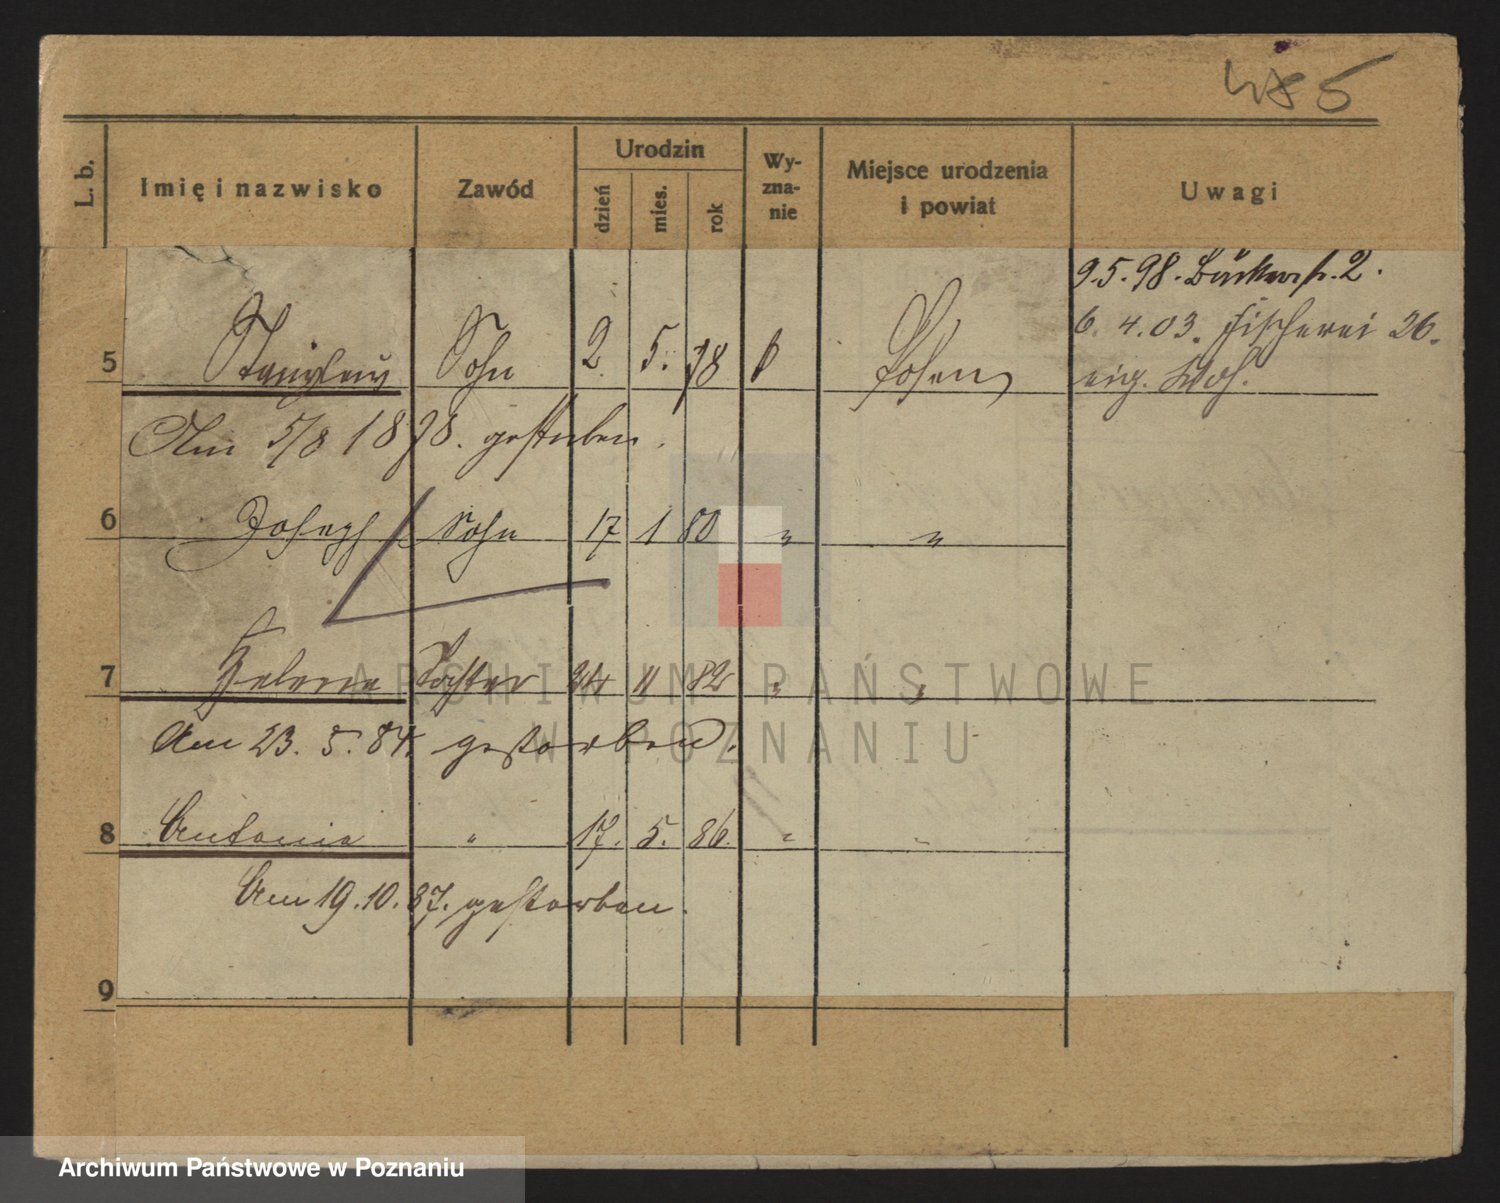 485
L. b. Imię i nazwisko Zawód Urodzin dzień mies. rok Wyzna-nie Miejsce urodzenia i powiat Uwagi
9.5.98. Bäckerstr. 2.
6. 4. 03. Fischerei 26.
5 Stanislaus Sohn 2 5. 78 k Posen eig. Woh.
Am 5/8 1878. gestorben.
6 Joseph Sohn 17 1 80 " "
7 Helene Tochter 24 11 82 " "
Am 23. 5. 84. gestorben.
8 Antonie " 17. 5. 86. " "
Am 19. 10. 87. gestorben.
9
ARCHIWUM PAŃSTWOWE
W POZNANIU
Archiwum Państwowe w Poznaniu